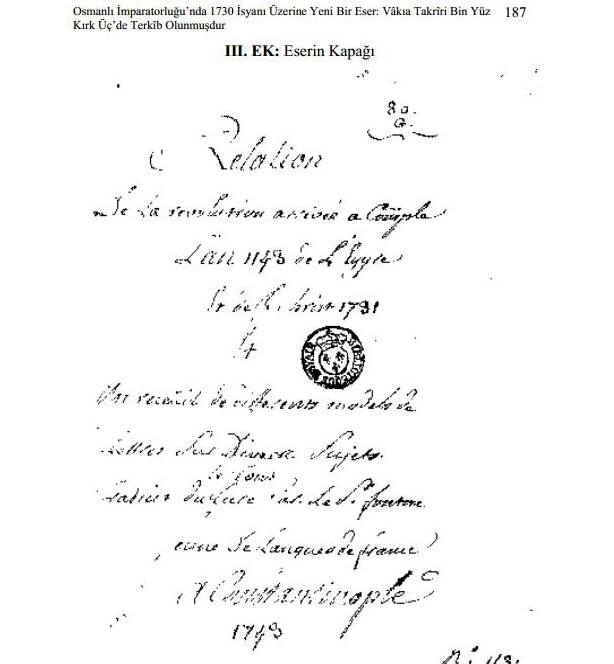 Osmanlı İmparatorluğu’nda 1730 İsyanı Üzerine Yeni Bir Eser: Vâkıa Takrîri Bin Yüz 187
Kırk Üç’de Terkîb Olunmuşdur
III. EK: Eserin Kapağı
80.
Relation
De La revolution arrivée a Comple
L'an 1143 de L'Egyre
1731
Un recueil de differents models de
Lettres Sur Divers Sujets.
le tout
Par Le Sr. fonton
de Langues de france
A Constantinople
1743